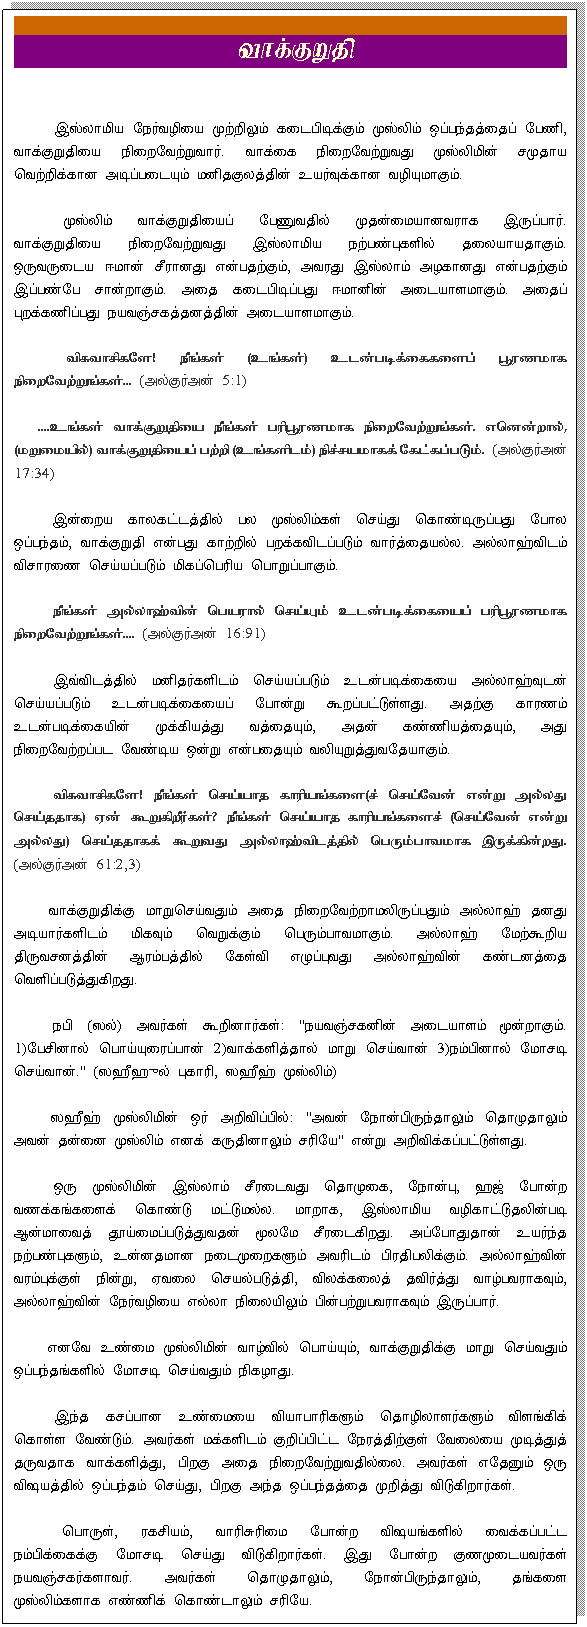 வாக்குறுதி
இஸ்லாமிய நேர்வழியை முற்றிலும் கடைபிடிக்கும் முஸ்லிம் ஒப்பந்தத்தைப் பேணி,
வாக்குறுதியை நிறைவேற்றுவார். வாக்கை நிறைவேற்றுவது முஸ்லிமின் சமுதாய
வெற்றிக்கான அடிப்படையும் மனிதகுலத்தின் உயர்வுக்கான வழியுமாகும்.
முஸ்லிம் வாக்குறுதியைப் பேணுவதில் முதன்மையானவராக இருப்பார்.
வாக்குறுதியை நிறைவேற்றுவது இஸ்லாமிய நற்பண்புகளில் தலையாயதாகும்.
ஒருவருடைய ஈமான் சீரானது என்பதற்கும், அவரது இஸ்லாம் அழகானது என்பதற்கும்
இப்பண்பே சான்றாகும். அதை கடைபிடிப்பது ஈமானின் அடையாளமாகும். அதைப்
புறக்கணிப்பது நயவஞ்சகத்தனத்தின் அடையாளமாகும்.
விசுவாசிகளே! நீங்கள் (உங்கள்) உடன்படிக்கைகளைப் பூரணமாக
நிறைவேற்றுங்கள்... (அல்குர்அன் 5:1)
....உங்கள் வாக்குறுதியை நீங்கள் பரிபூரணமாக நிறைவேற்றுங்கள். எனென்றால்,
(மறுமையில்) வாக்குறுதியைப் பற்றி (உங்களிடம்) நிச்சயமாகக் கேட்கப்படும். (அல்குர்அன்
17:34)
இன்றைய காலகட்டத்தில் பல முஸ்லிம்கள் செய்து கொண்டிருப்பது போல
ஒப்பந்தம், வாக்குறுதி என்பது காற்றில் பறக்கவிடப்படும் வார்த்தையல்ல. அல்லாஹ்விடம்
விசாரணை செய்யப்படும் மிகப்பெரிய பொறுப்பாகும்.
நீங்கள் அல்லாஹ்வின் பெயரால் செய்யும் உடன்படிக்கையைப் பரிபூரணமாக
நிறைவேற்றுங்கள்.... (அல்குர்அன் 16:91)
இவ்விடத்தில் மனிதர்களிடம் செய்யப்படும் உடன்படிக்கையை அல்லாஹ்வுடன்
செய்யப்படும் உடன்படிக்கையைப் போன்று கூறப்பட்டுள்ளது. அதற்கு காரணம்
உடன்படிக்கையின் முக்கியத்து வத்தையும், அதன் கண்ணியத்தையும், அது
நிறைவேற்றப்பட வேண்டிய ஒன்று என்பதையும் வலியுறுத்துவதேயாகும்.
விசுவாசிகளே! நீங்கள் செய்யாத காரியங்களை(ச் செய்வேன் என்று அல்லது
செய்ததாக) ஏன் கூறுகிறீர்கள்? நீங்கள் செய்யாத காரியங்களைச் (செய்வேன் என்று
அல்லது) செய்ததாகக் கூறுவது அல்லாஹ்விடத்தில் பெரும்பாவமாக இருக்கின்றது.
(அல்குர்அன் 61:2,3)
வாக்குறுதிக்கு மாறுசெய்வதும் அதை நிறைவேற்றாமலிருப்பதும் அல்லாஹ் தனது
அடியார்களிடம் மிகவும் வெறுக்கும் பெரும்பாவமாகும். அல்லாஹ் மேற்கூறிய
திருவசனத்தின் ஆரம்பத்தில் கேள்வி எழுப்புவது அல்லாஹ்வின் கண்டனத்தை
வெளிப்படுத்துகிறது.
நபி (ஸல்) அவர்கள் கூறினார்கள்: "நயவஞ்சகனின் அடையாளம் மூன்றாகும்.
1)பேசினால் பொய்யுரைப்பான் 2)வாக்களித்தால் மாறு செய்வான் 3)நம்பினால் மோசடி
செய்வான்." (ஸஹீஹுல் புகாரி, ஸஹீஹ் முஸ்லிம்)
ஸஹீஹ் முஸ்லிமின் ஓர் அறிவிப்பில்: "அவன் நோன்பிருந்தாலும் தொழுதாலும்
அவன் தன்னை முஸ்லிம் எனக் கருதினாலும் சரியே" என்று அறிவிக்கப்பட்டுள்ளது.
ஒரு முஸ்லிமின் இஸ்லாம் சீரடைவது தொழுகை, நோன்பு, ஹஜ் போன்ற
வணக்கங்களைக் கொண்டு மட்டுமல்ல. மாறாக, இஸ்லாமிய வழிகாட்டுதலின்படி
ஆன்மாவைத் தூய்மைப்படுத்துவதன் மூலமே சீரடைகிறது. அப்போதுதான் உயர்ந்த
நற்பண்புகளும், உன்னதமான நடைமுறைகளும் அவரிடம் பிரதிபலிக்கும். அல்லாஹ்வின்
வரம்புக்குள் நின்று, ஏவலை செயல்படுத்தி, விலக்கலைத் தவிர்த்து வாழ்பவராகவும்,
அல்லாஹ்வின் நேர்வழியை எல்லா நிலையிலும் பின்பற்றுபவராகவும் இருப்பார்.
எனவே உண்மை முஸ்லிமின் வாழ்வில் பொய்யும், வாக்குறுதிக்கு மாறு செய்வதும்
ஒப்பந்தங்களில் மோசடி செய்வதும் நிகழாது.
இந்த கசப்பான உண்மையை வியாபாரிகளும் தொழிலாளர்களும் விளங்கிக்
கொள்ள வேண்டும். அவர்கள் மக்களிடம் குறிப்பிட்ட நேரத்திற்குள் வேலையை முடித்துத்
தருவதாக வாக்களித்து, பிறகு அதை நிறைவேற்றுவதில்லை. அவர்கள் எதேனும் ஒரு
விஷயத்தில் ஒப்பந்தம் செய்து, பிறகு அந்த ஒப்பந்தத்தை முறித்து விடுகிறார்கள்.
பொருள், ரகசியம், வாரிசுரிமை போன்ற விஷயங்களில் வைக்கப்பட்ட
நம்பிக்கைக்கு மோசடி செய்து விடுகிறார்கள். இது போன்ற குணமுடையவர்கள்
நயவஞ்சகர்களாவர். அவர்கள் தொழுதாலும், நோன்பிருந்தாலும், தங்களை
முஸ்லிம்களாக எண்ணிக் கொண்டாலும் சரியே.